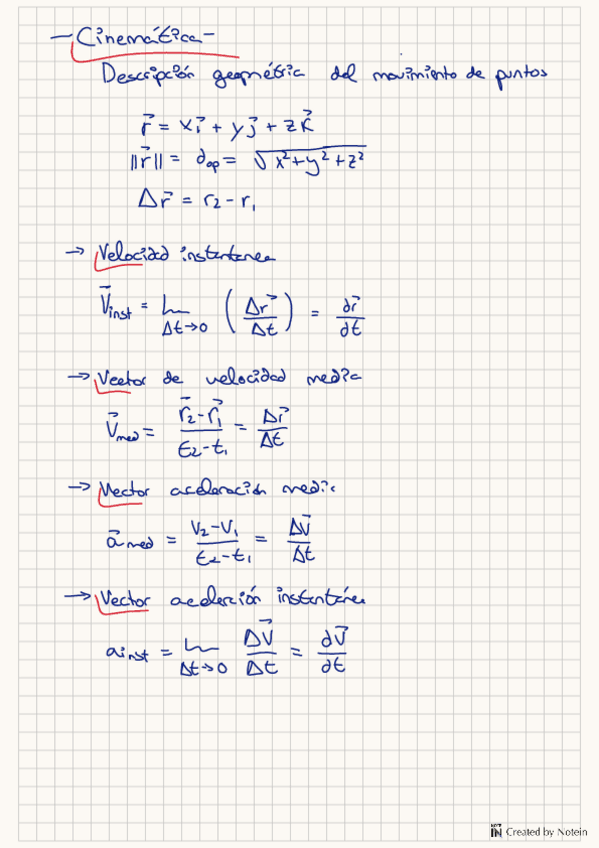 - Cinemática -
Descripción geométrica del movimiento de puntos
r⃗ = xi⃗ + yj⃗ + zk⃗
||r⃗|| = dop = √(x²+y²+z²)
Δr⃗ = r₂ - r₁
→ Velocidad instantanea
V⃗inst = lim Δt→0 (Δr⃗/Δt) = dr⃗/dt
→ Vector de velocidad media
V⃗med = (r⃗₂ - r⃗₁)/(t₂ - t₁) = Δr⃗/Δt
→ Vector aceleración media
a⃗med = (V₂ - V₁)/(t₂ - t₁) = ΔV⃗/Δt
→ Vector aceleración instantánea
ainst = lim Δt→0 ΔV⃗/Δt = dV⃗/dt
NOTE IN Created by Notein